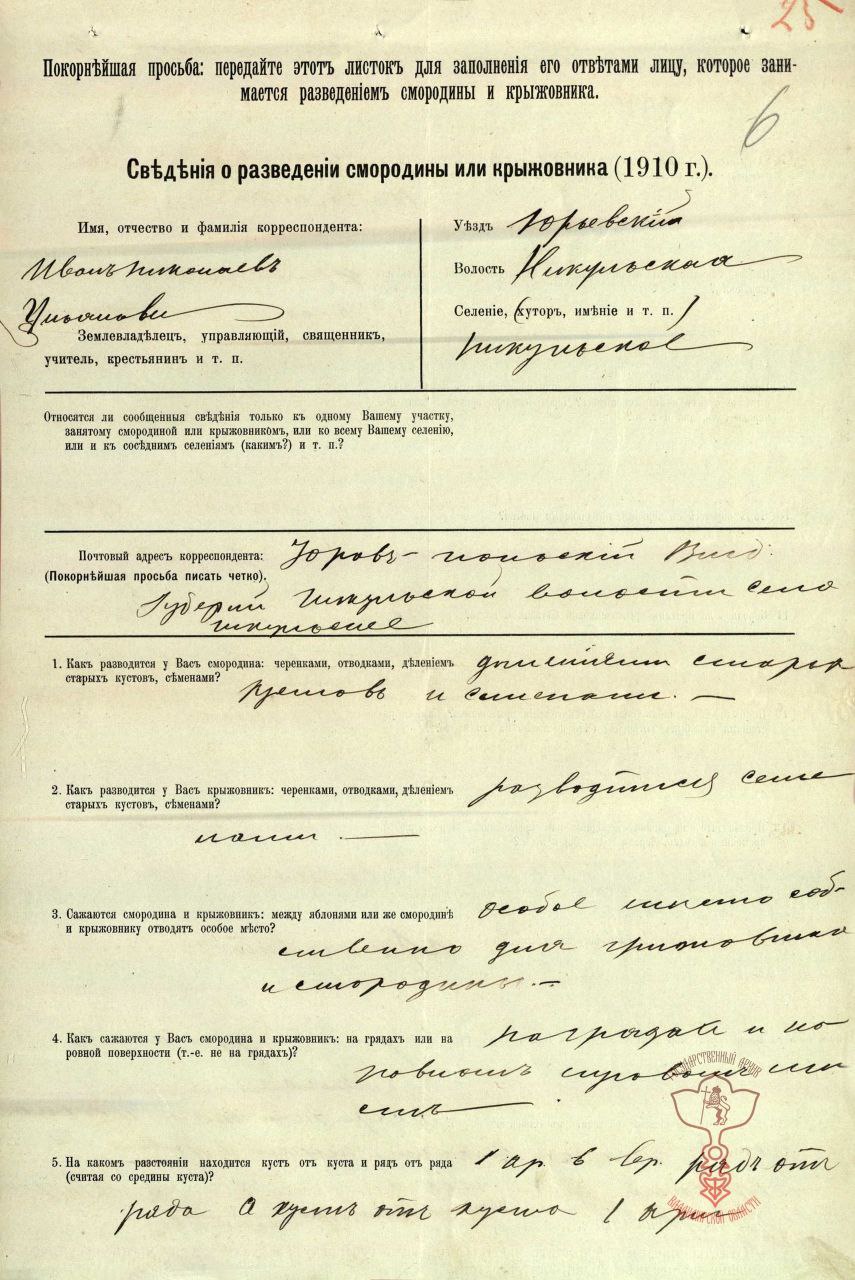 25
Покорнѣйшая просьба: передайте этотъ листокъ для заполненія его отвѣтами лицу, которое зани-
мается разведеніемъ смородины и крыжовника.
6
Свѣдѣнія о разведеніи смородины или крыжовника (1910 г.).
Имя, отчество и фамилія корреспондента:
Иванъ Николаевъ
Землевладѣлецъ, управляющій, священникъ,
учитель, крестьянинъ и т. п.
Уѣздъ Юрьевскій
Волость Никульская
Селеніе, (хуторъ, имѣніе и т. п.)
Никульское
Относятся ли сообщенныя свѣдѣнія только къ одному Вашему участку,
занятому смородиной или крыжовникомъ, или ко всему Вашему селенію,
или и къ сосѣднимъ селеніямъ (какимъ?) и т. п.?
Почтовый адресъ корреспондента: польскій
(Покорнѣйшая просьба писать четко).
Губерніи Никульской волости село
Никульское
1. Какъ разводится у Васъ смородина: черенками, отводками, дѣленіемъ
старыхъ кустовъ, сѣменами?
кустовъ и семенами. —
2. Какъ разводится у Васъ крыжовникъ: черенками, отводками, дѣленіемъ
старыхъ кустовъ, сѣменами?
разводится семе
нами. —
3. Сажаются смородина и крыжовникъ: между яблонями или же смородинѣ
и крыжовнику отводятъ особое мѣсто?
особое место соб-
ственно для
и смородины. —
4. Какъ сажаются у Васъ смородина и крыжовникъ: на грядахъ или на
ровной поверхности (т.-е. не на грядахъ)?
и на
5. На какомъ разстояніи находится кустъ отъ куста и рядъ отъ ряда
(считая со средины куста)?
1 ар. 6 вер. рядъ отъ
ряда а кустъ отъ куста 1 арш
ГОСУДАРСТВЕННЫЙ АРХИВ
ВЛАДИМИРСКОЙ ОБЛАСТИ